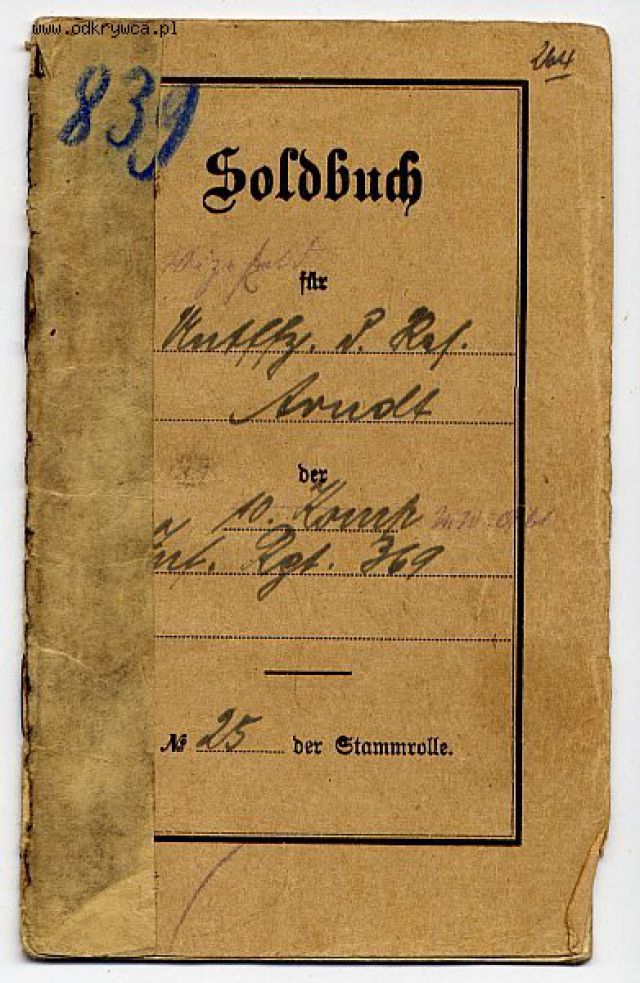 www.odkrywca.pl
264
839
Soldbuch
für
Untffz. d. Res.
Arndt
der
10. Komp
Inf. Rgt. 369
№ 25 der Stammrolle.